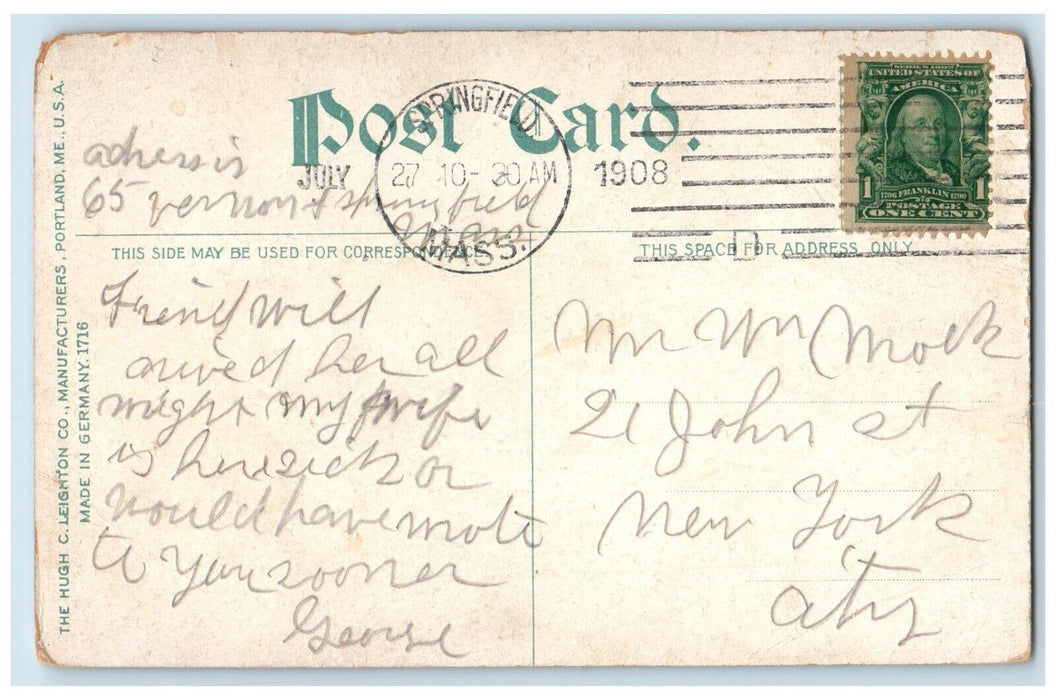 Post Card.
SPRINGFIELD
JULY 27 10-30 AM 1908
MASS.
D
SERIES 1902
UNITED STATES OF
AMERICA
1 1706 FRANKLIN 1790 1
POSTAGE
ONE CENT
adress is
65 vernon st springfield
mass
THIS SIDE MAY BE USED FOR CORRESPONDENCE
THIS SPACE FOR ADDRESS ONLY
THE HUGH C. LEIGHTON CO., MANUFACTURERS, PORTLAND, ME., U.S.A.
MADE IN GERMANY. 1716
Friend Will
arived her all
wright my wife
is here sick or
would have wrote
to you sooner
George
Mr Wm Mock
21 John st
New York
city